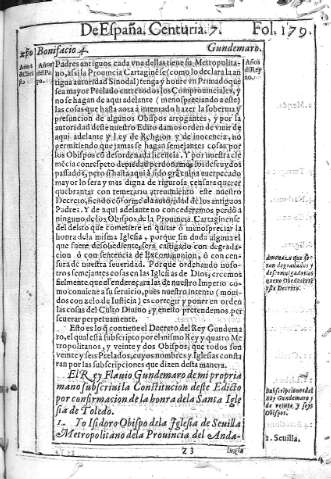 De España. Centuria. 7.
Fol. 179.
Bonifacio 4.
Gundemaro.
Padres antiguos cada vno dellas tiene su Metropolita-
no, assi la Prouincia Cartaginese (como lo declara la an
tigua autoridad Sinodal) tenga y honre en Primado que
sea mayor Prelado entre todos los Comprouinciales, y
no se hagan de aqui adelante (menospreciando a este)
las cosas que hasta aora à intentado hazer la soberuia y
presuncion de algunos Obispos arrogantes, y por la
autoridad deste nuestro Edito damos orden de viuir de
aqui adelante y Ley de Religion y de inocencia, no
permitiendo que jamas se hagan semejantes cosas por
los Obispos cõ desordenada licencia. Y por nuestra cle
mẽcia concepto de piedad perdonamos los descuydos
passados, pero si hasta aqui à sido grãue culpa
mayor lo sera y mas digna de rigurosa censura que-
brantar con temeraria atreuimiento este nuestro
Decreto, siendo conforme al autoridad de los antiguos
Padres. Y de aqui adelante no concederemos perdõ à
ninguno de los Obispos de la Prouincia Cartaginense
del delito que cometiere en quitar ò menospreciar la
honra de la misma Iglesia, porque sin duda alguna el
que fuere desobediente, serà castigado con degrada-
cion ò con sentencia de Excomunion, ò con cen-
sura de nuestra seueridad. Porque ordenando noso-
tros semejantes cosas en las Iglesias de Dios, creemos
fielmente que se enderezan las de nuestro Imperio co-
mo conuiene a su seruicio, pues nuestro intento (moui-
dos con zelo de Iusticia) es corregir y poner en orden
las cosas del Culto Diuino, y en ello pretendemos per
seuerar perpetuamente.
Esto es lo q̃ contiene el Decreto del Rey Gundema
ro, el qual està subscripto por el mismo Rey y quatro Me
tropolitanos, y veinte y dos Obispos, que todos son
veinte y seis Prelados, cuyos nombres y Iglesias consta
ran por las subscripciones que dizen desta manera.
El Rey Flauio Gundemaro de mi propria
mano subscriui la Constitucion deste Edicto
por confirmacion de la honra dela Santa Igle
sia de Toledo.
1. Yo Isidoro Obispo dela Iglesia de Seuilla
Metropolitano de la Prouincia del Anda-
Subscripciones del
Rey Gundemaro y
de veinte y seis
Obispos.
1. Seuilla.
Z 3
luzia